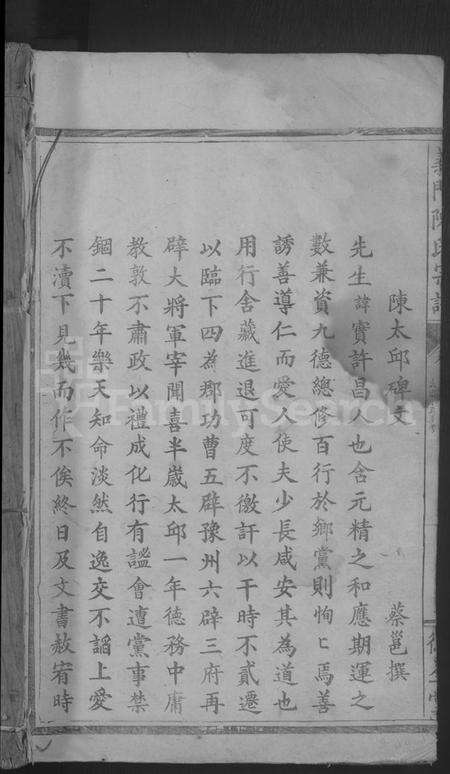 義門陳氏宗譜
陳太邱碑文 蔡邕撰
先生諱寔許昌人也含元精之和應期運之
數兼資九德總修百行於鄉黨則恂〻焉善
誘善導仁而愛人使夫少長咸安其為道也
用行舍藏進退可度不徼訐以干時不貳遷
以臨下四為郡功曹五辟豫州六辟三府再
辟大將軍宰聞喜半歲太邱一年德務中庸
教敦不肅政以禮成化行有謐會遭黨事禁
錮二十年樂天知命淡然自逸交不謟上愛
不瀆下見幾而作不俟終日及文書赦宥時
FamilySearch